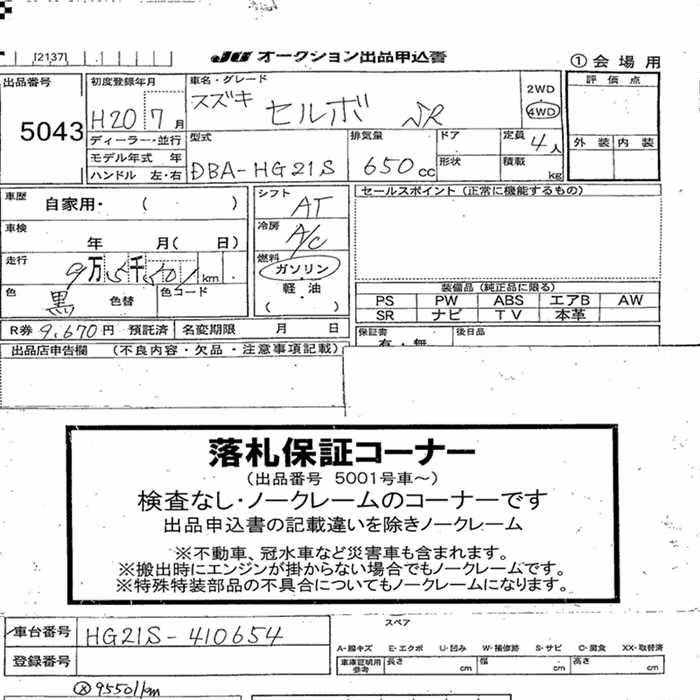 [2137]
JU オークション出品申込書
①会場用
出品番号
5043
初度登録年月
H20 7月
ディーラー・並行
モデル年式 年
ハンドル 左・右
車名・グレード
スズキ セルボ SR
2WD
4WD
評価点
外装 内装
型式
DBA-HG21S
排気量
650cc
ドア
形状
定員
4人
積載
kg
車歴
自家用・( )
車検
年 月( 日)
走行
9万5千501km
色
黒
色替
色コード
シフト
AT
冷房
A/C
燃料
ガソリン
軽油
( )
セールスポイント (正常に機能するもの)
装備品 (純正品に限る)
PS PW ABS エアB AW
SR ナビ TV 本革
R券 9,670円 預託済 名変期限 月 日
保証書
有・無
後日品
出品店申告欄 (不良内容・欠品・注意事項記載)
落札保証コーナー
(出品番号 5001号車~)
検査なし・ノークレームのコーナーです
出品申込書の記載違いを除きノークレーム
※不動車、冠水車など災害車も含まれます。
※搬出時にエンジンが掛からない場合でもノークレームです。
※特殊特装部品の不具合についてもノークレームになります。
車台番号 HG21S-410654
登録番号
スペア
A-線キズ E-エクボ U-凹み W-補修跡 S-サビ C-腐食 XX-取替済
車庫証明用参考 長さ cm 幅 cm 高さ cm
95501km